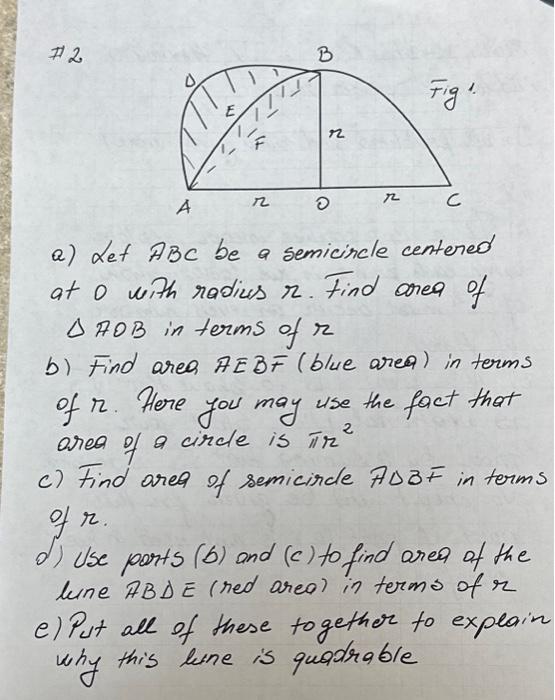 #2
B
D
Fig 1.
E
F
r
A r O r C
a) Let ABC be a semicircle centered
at O with radius r. Find area of
Δ AOB in terms of r
b) Find area AEBF (blue area) in terms
of r. Here you may use the fact that
area of a circle is πr²
c) Find area of semicircle ADBF in terms
of r.
d) Use parts (b) and (c) to find area of the
lune ABDE (red area) in terms of r
e) Put all of these together to explain
why this lune is quadrable